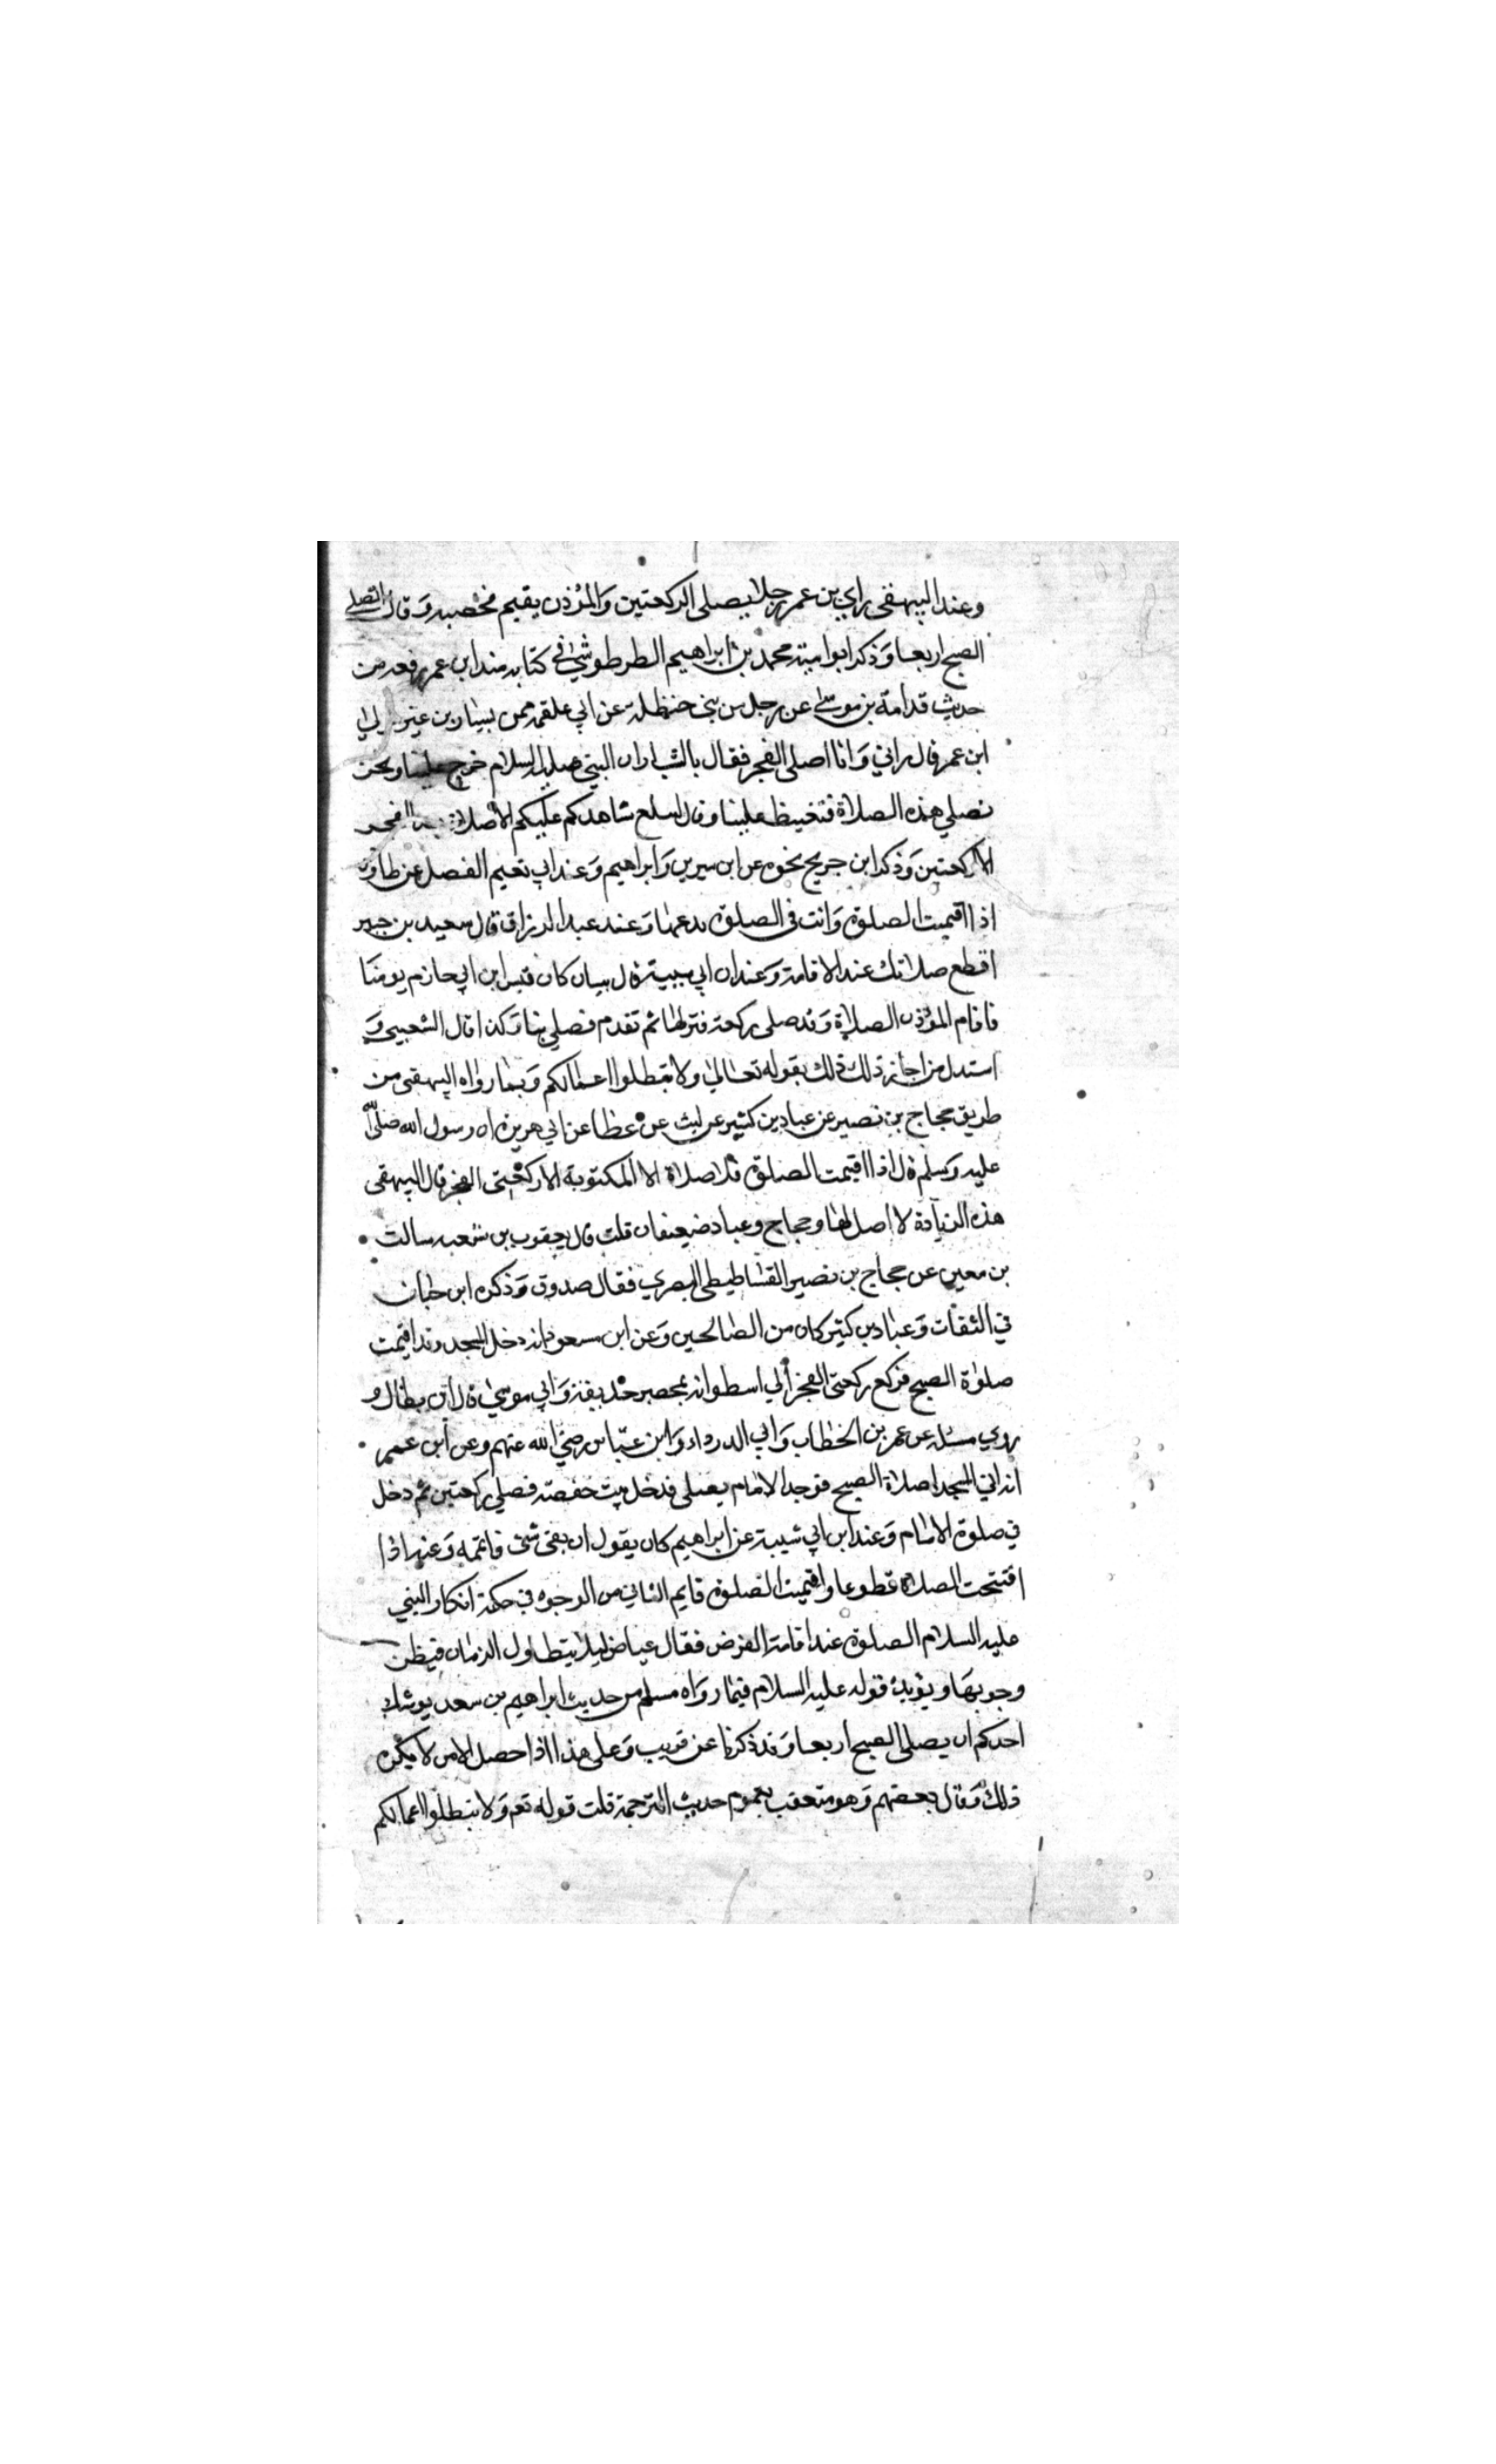 وعند البيهقي راي بن عمر رجلا يصلي الركعتين والمؤذن يقيم فحصبه وقال اتصلي
الصبح اربعا وذكر ابو امية محمد بن ابراهيم الطرطوشي في كتابه مسند ابن عمر رفعه من
حديث قدامة بن موسى عن رجل من بني حنظلة عن ابي علقمة عن يسار بن نمير
ابن عمر قال راني وانا اصلي الفجر فقال يا يسار ان النبي عليه السلام خرج علينا ونحن
نصلي هذه الصلاة فتغيظ علينا وقال ليبلغ شاهدكم غايبكم لا صلاة بعد الفجر
الا ركعتين وذكر ابن جريج نحوه عن ابن سيرين وابراهيم وعند ابي نعيم الفضل عن طاوس
اذا اقيمت الصلوة وانت في الصلوة فدعها وعند عبد الرزاق قال سعيد بن جبير
اقطع صلاتك عند الاقامة وعند ابن ابي شيبة قال بيان كان قيس ابن ابي حازم يومنا
فاقام المؤذن الصلاة وقد صلى ركعة فتركها ثم تقدم فصلي بنا وكذا قال الشعبي و
استدل من اجاز ذلك بقوله تعالى ولا تبطلوا اعمالكم وبما رواه البيهقي من
طريق حجاج بن نصير عن عباد بن كثير عن ليث عن عطا عن ابي هريرة ان رسول الله صلى الله
عليه وسلم قال اذا اقيمت الصلوة فلا صلاة الا المكتوبة الا ركعتي الفجر قال البيهقي
هذه الزيادة لا اصل لها وحجاج وعباد ضعيفان قلت قال يعقوب بن شيبه سالت
بن معين عن حجاج بن نصير الفساطيطي البصري فقال صدوق وذكره ابن حبان
في الثقات وعباد بن كثير كان من الصالحين وعن ابن مسعود انه دخل المسجد وقد اقيمت
صلوة الصبح فركع ركعتي الفجر الي اسطوانه بمحضر حذيفة وابي موسى قال ابن بطال و
روي مثله عن عمر بن الخطاب وابي الدرداء وابن عباس رضي الله عنهم وعن ابن عمر
انه اتي المسجد لصلاة الصبح فوجد الامام يصلي فدخل بيت حفصة فصلي ركعتين ثم دخل
في صلوة الامام وعند ابن ابي شيبة عن ابراهيم كان يقول ان بقي شئ فاتمه وعنه اذا
افتتحت الصلاة تطوعا واقيمت الصلوة فايم الثاني من الوجوه في حكمة انكار النبي
عليه السلام الصلوة عند اقامة الفرض فقال عياض ليلا يتطاول الزمان فيظن
وجوبها ويؤيده قوله عليه السلام فيما رواه مسلم من حديث ابراهيم بن سعد يوشك
احدكم ان يصلي الصبح اربعا وقد ذكرنا عن قريب وعلى هذا اذا حصل الامن لا يكره
ذلك وقال بعضهم وهو متعقب بعموم حديث الترجمة قلت قوله تعم ولا تبطلوا اعمالكم